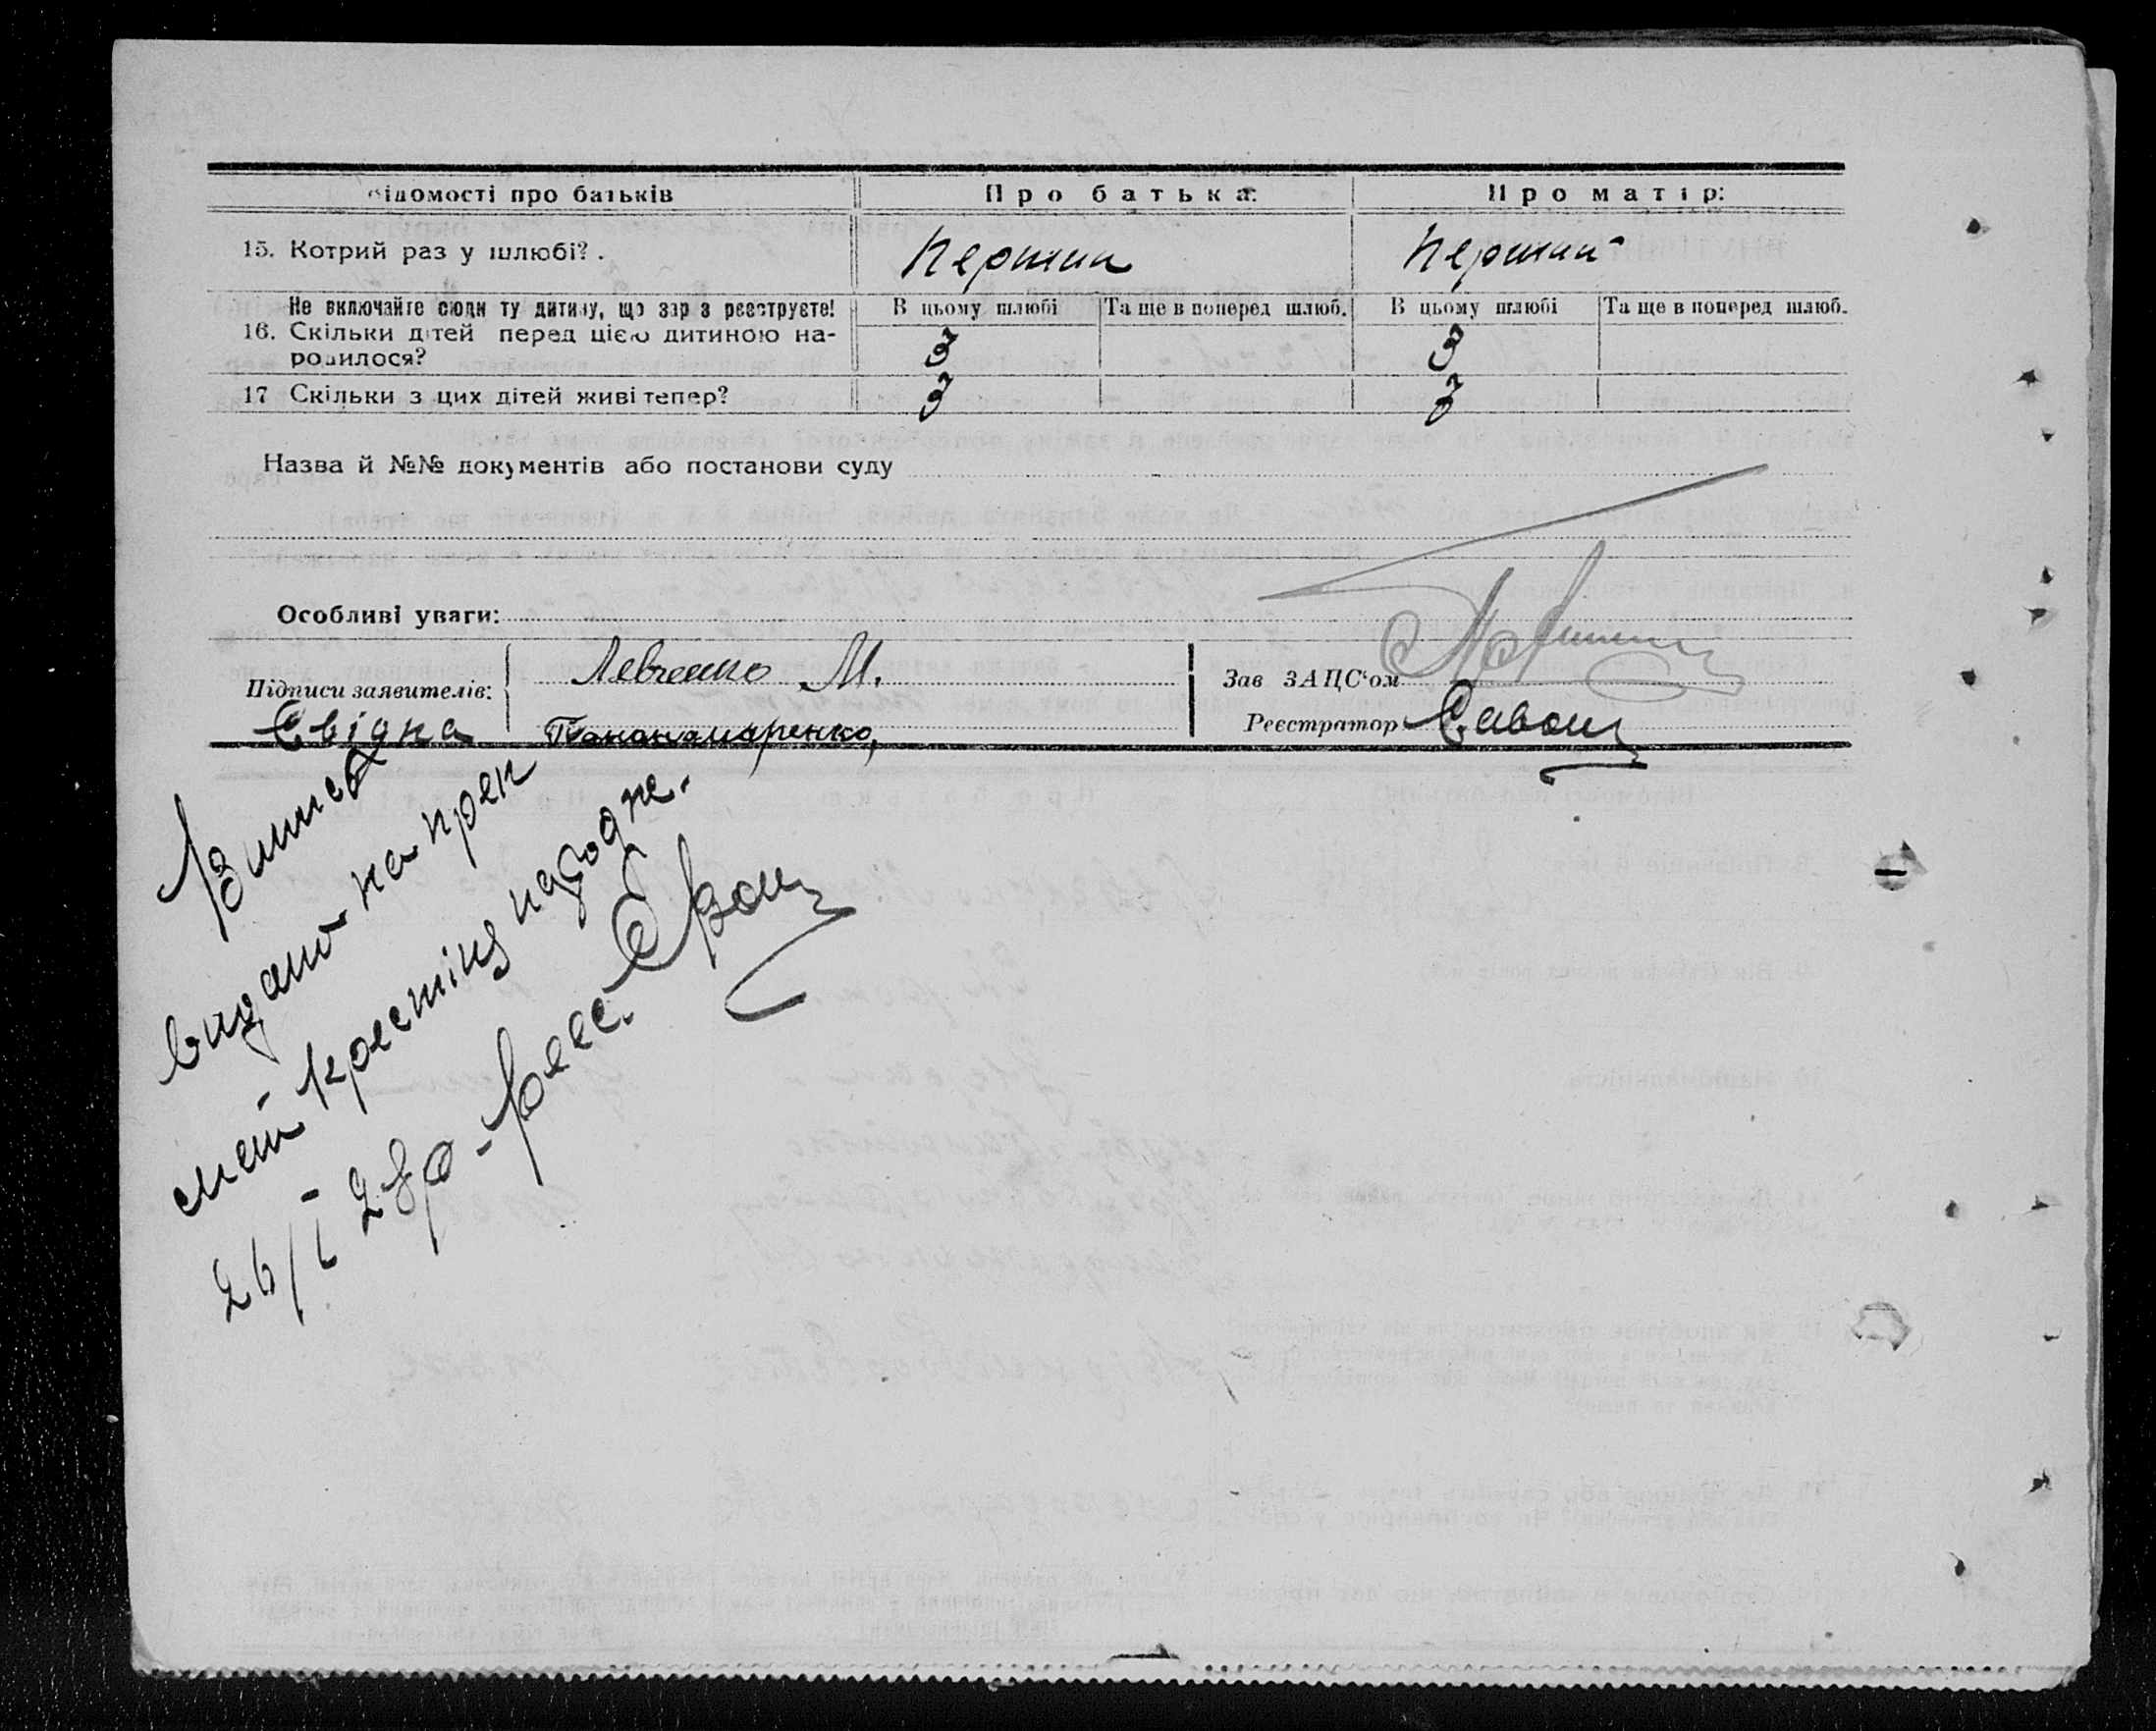 Відомості про батьків Про батька: Про матір:
15. Котрий раз у шлюбі? . Перший Перший
Не включайте сюди ту дитину, що зараз реєструєте! В цьому шлюбі Та ще в поперед шлюб. В цьому шлюбі Та ще в поперед шлюб.
16. Скільки дітей перед цією дитиною на-
родилося? 3 3
17 Скільки з цих дітей живі тепер? 3 3
Назва й №№ документів або постанови суду
Особливі уваги:
Підписи заявителів: Левченко М. Зав ЗАЦС‘ом
Свідка Понаномаренко, Реєстратор Савош
Випись
видано на пред
мет крестін
26/I 28р. Реес.